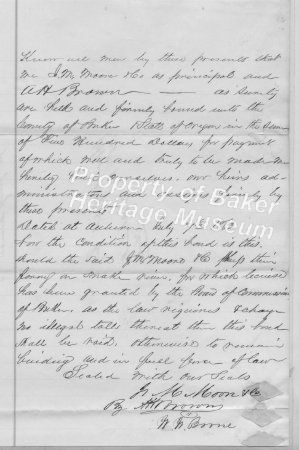 Know all men by these presents that
we J. M. Moore & Co as principals and
A H Brown — as Surety
are held and firmly bound unto the
County of Baker State of Oregon in the sum
of Five Hundred Dollars for payment
of which well and truly to be made we
hereby bind ourselves, our heirs ad-
ministrators and assigns firmly by
these presents
Dated at Auburn July
for the Condition of this bond is this.
should the said J M Moore & Co keep their
ferry on Snake River, for which license
has been granted by the Board of Commissioners
of Baker as the law requires & charge
no illegal tolls thereat then this bond
shall be void. otherwise to remain
binding and in full force of law
Sealed with our Seals
J. M. Moore & Co
By A H Brown
Property of Baker
Heritage Museum